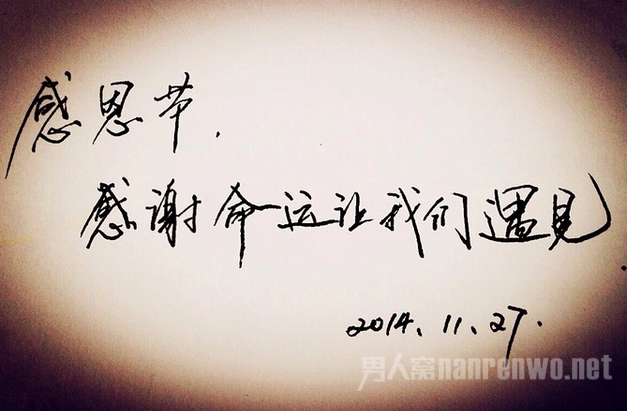 感恩节.
感谢命运让我们遇见.
2014.11.27.
男人窝nanrenwo.net